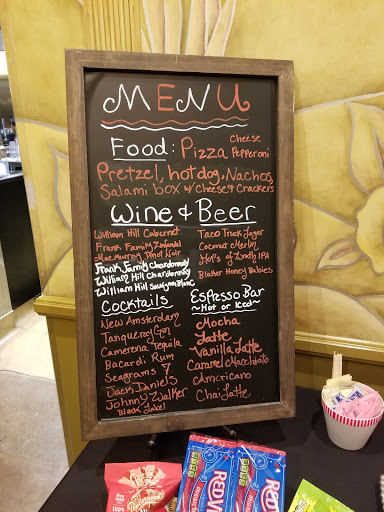 MENU
Food: Pizza Cheese Pepperoni
Pretzel, hotdog, Nachos,
Salami box w/ Cheese & Crackers
Wine & Beer
William Hill Cabernet
Frank Family Zinfandel
MacMurray Pinot Noir
Frank Family Chardonnay
William Hill Chardonnay
William Hill Sauvignon Blanc
Taco Truck Lager
Coconut Merlin
Hop's of Wrath IPA
Blister Honey Babies
Cocktails
New Amsterdam
Tanqueray Gin
Camerena Tequila
Bacardi Rum
Seagrams 7
Jack Daniels
Johnny Walker
Black Label
Espresso Bar
~Hot or Iced~
Mocha
Latte
Vanilla Latte
Caramel Macchiato
Americano
Chai Latte
RED